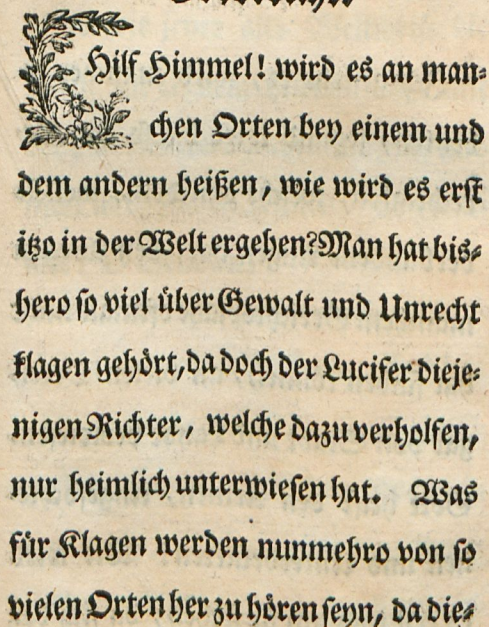 Hilf Himmel! wird es an man-
chen Orten bey einem und
dem andern heißen, wie wird es erst
itzo in der Welt ergehen? Man hat bis-
hero so viel über Gewalt und Unrecht
klagen gehört, da doch der Lucifer dieje-
nigen Richter, welche dazu verholfen,
nur heimlich unterwiesen hat. Was
für Klagen werden nunmehro von so
vielen Orten her zu hören seyn, da die-